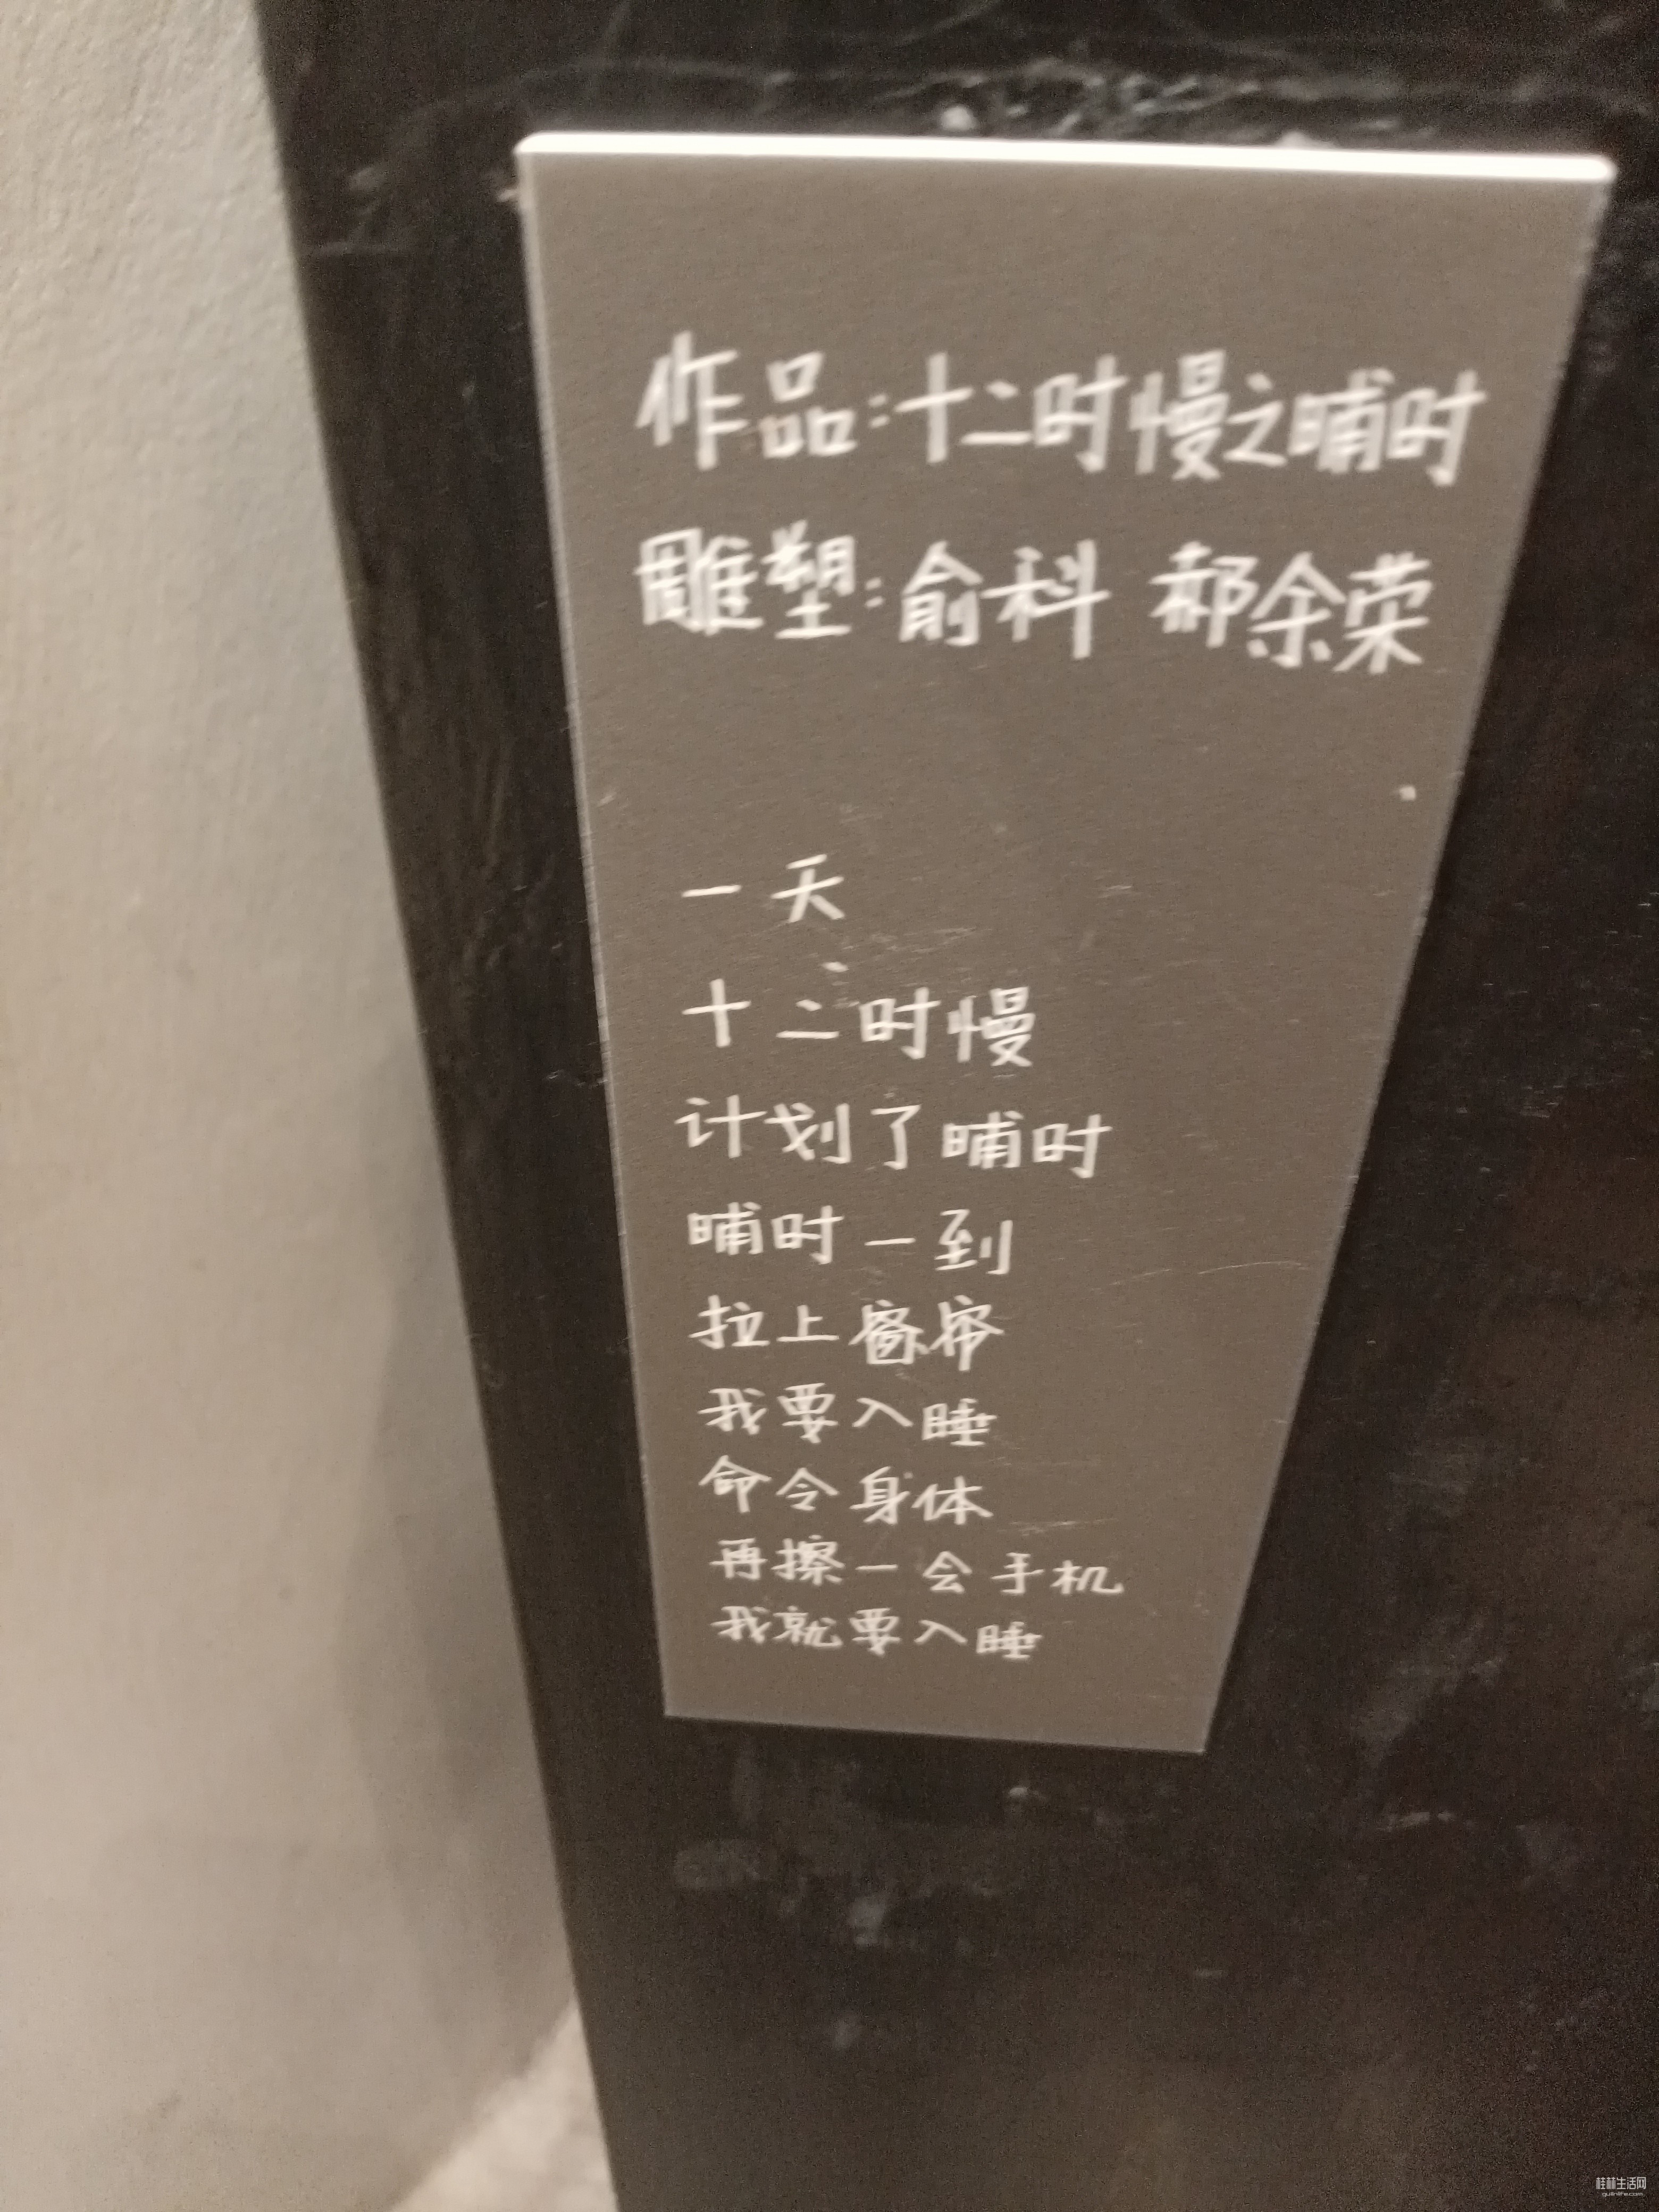 作品:十二时慢之晡时
雕塑:俞科 郝余荣
一天
十二时慢
计划了晡时
晡时一到
拉上窗帘
我要入睡
命令身体
再擦一会手机
我就要入睡
桂林生活网
guilinlife.com